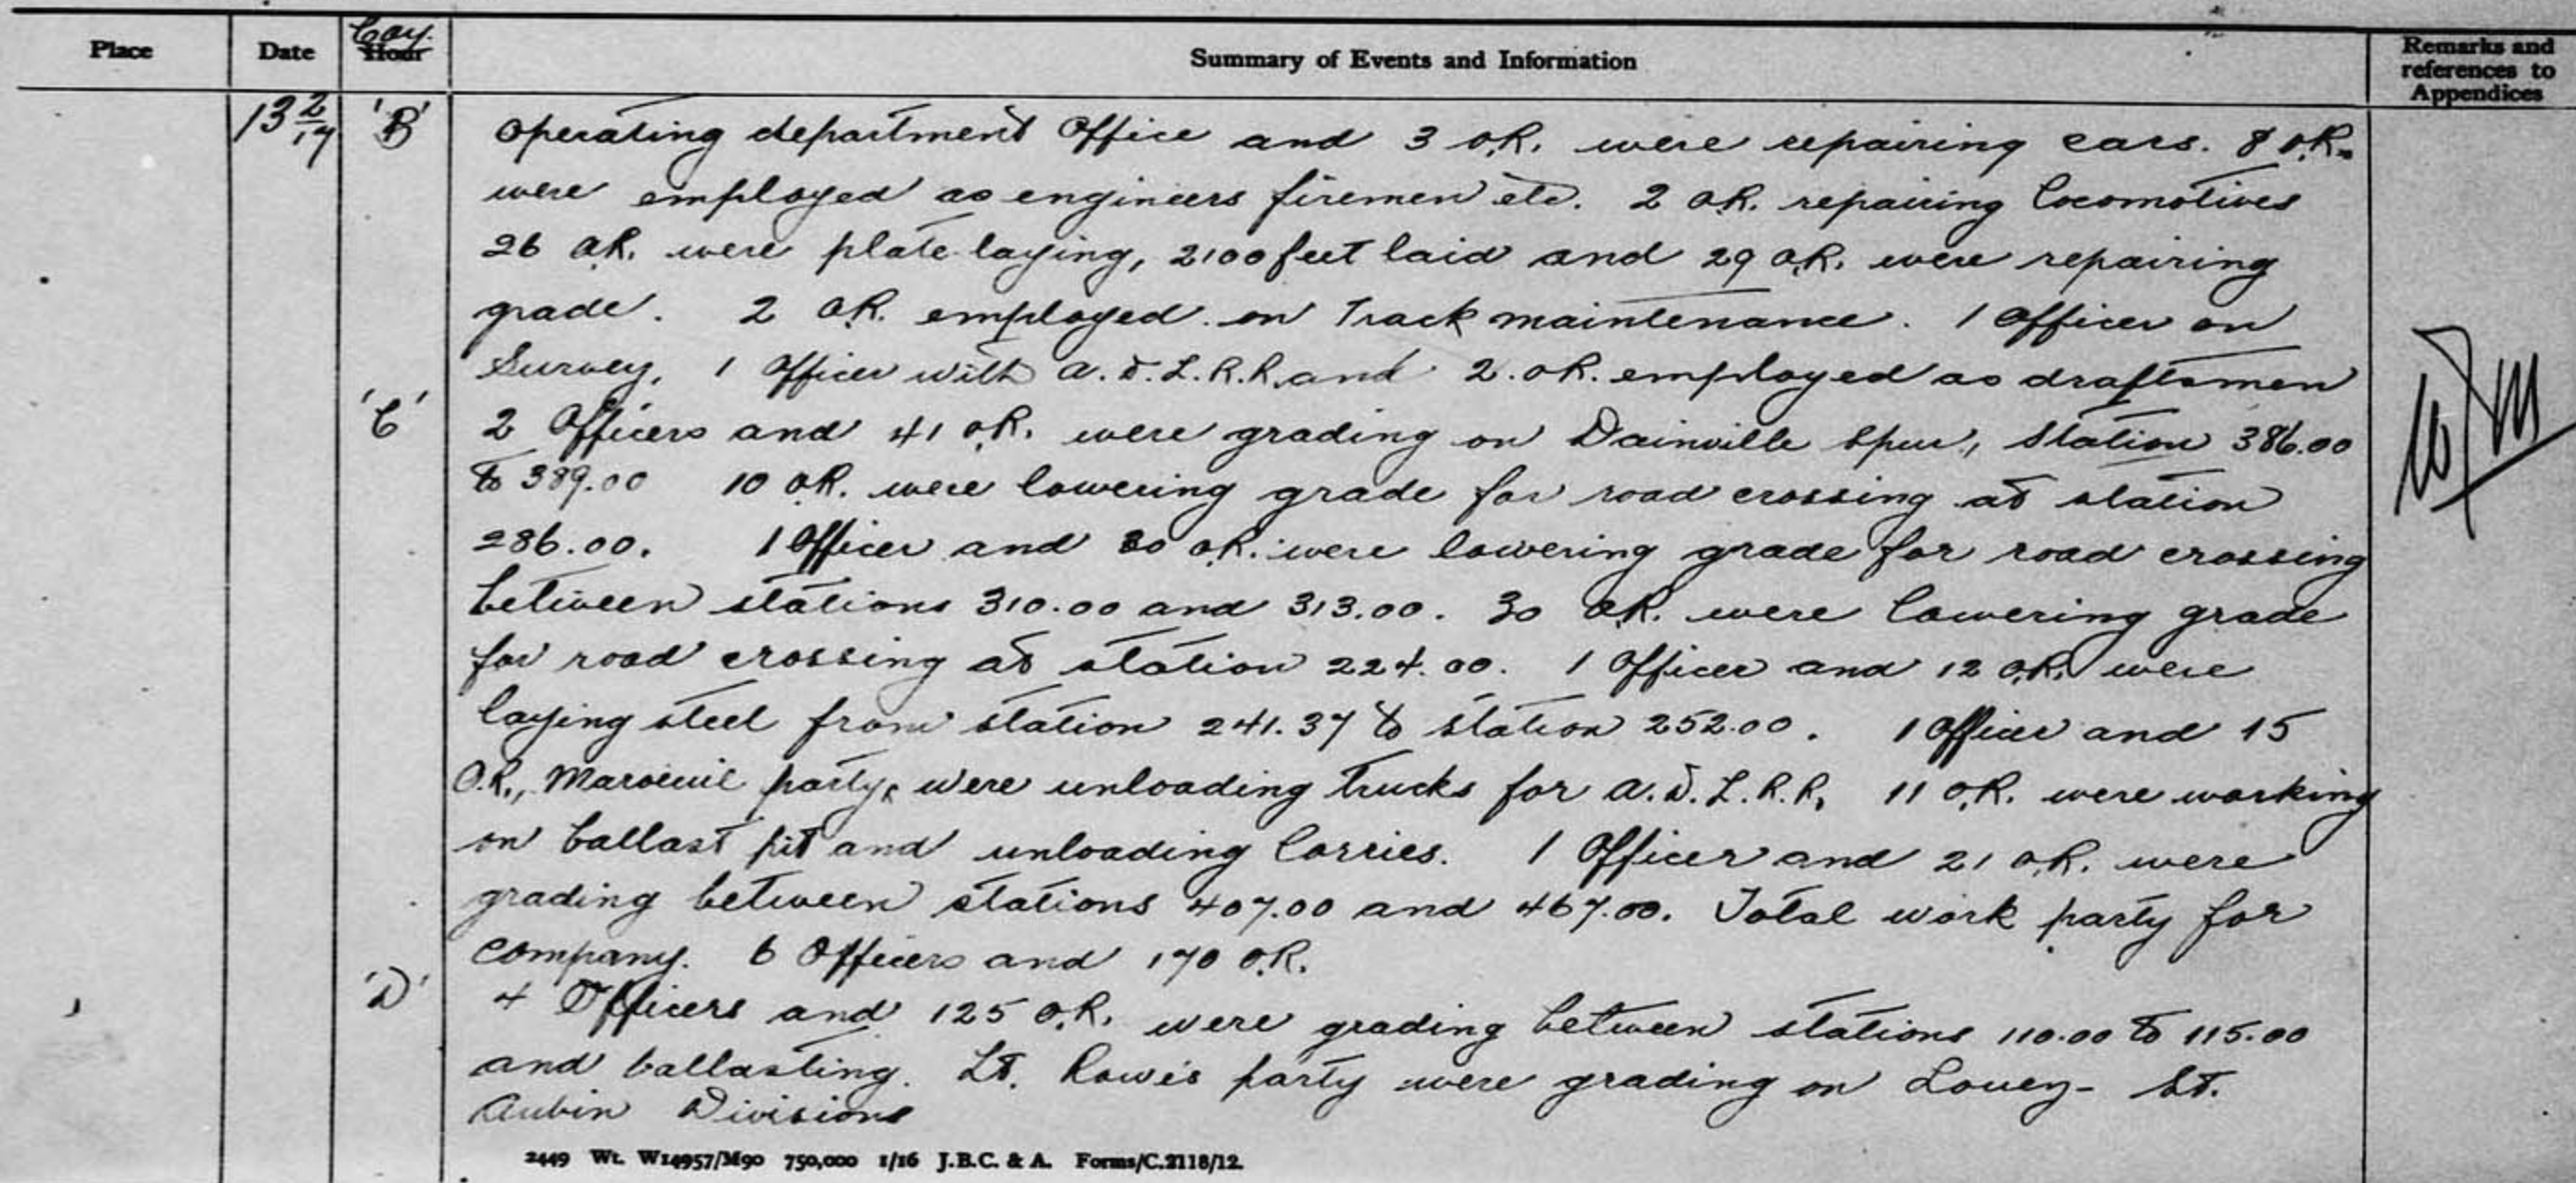 Place Date Coy. Hour Summary of Events and Information Remarks and references to Appendices
13 2/17 'B' Operating department Office and 3 O.R. were repairing cars. 8 O.R.
were employed as engineers firemen etc. 2 O.R. repairing locomotives
26 O.R. were plate laying, 2100 feet laid and 29 O.R. were repairing
grade. 2 O.R. employed on Track maintenance. 1 Officer on
Survey, 1 Officer with A.D.L.R.R. and 2 O.R. employed as draftsmen
'C' 2 Officers and 41 O.R. were grading on Dainville Spur, Station 386.00
to 389.00 10 O.R. were lowering grade for road crossing at station
286.00. 1 Officer and 30 O.R. were lowering grade for road crossing
between stations 310.00 and 313.00. 30 O.R. were lowering grade
for road crossing at station 224.00. 1 Officer and 12 O.R. were
laying steel from station 241.37 to station 252.00. 1 Officer and 15
O.R., Maroeuil party, were unloading trucks for A.D.L.R.R. 11 O.R. were working
on ballast pit and unloading lorries. 1 Officer and 21 O.R. were
grading between stations 407.00 and 467.00. Total work party for
Company. 6 Officers and 170 O.R.
'D' 4 Officers and 125 O.R. were grading between stations 110.00 to 115.00
and ballasting. Lt. Rowe's party were grading on Louez - St.
Aubin Divisions
2449 Wt. W14957/M90 750,000 1/16 J.B.C. & A. Forms/C.2118/12.